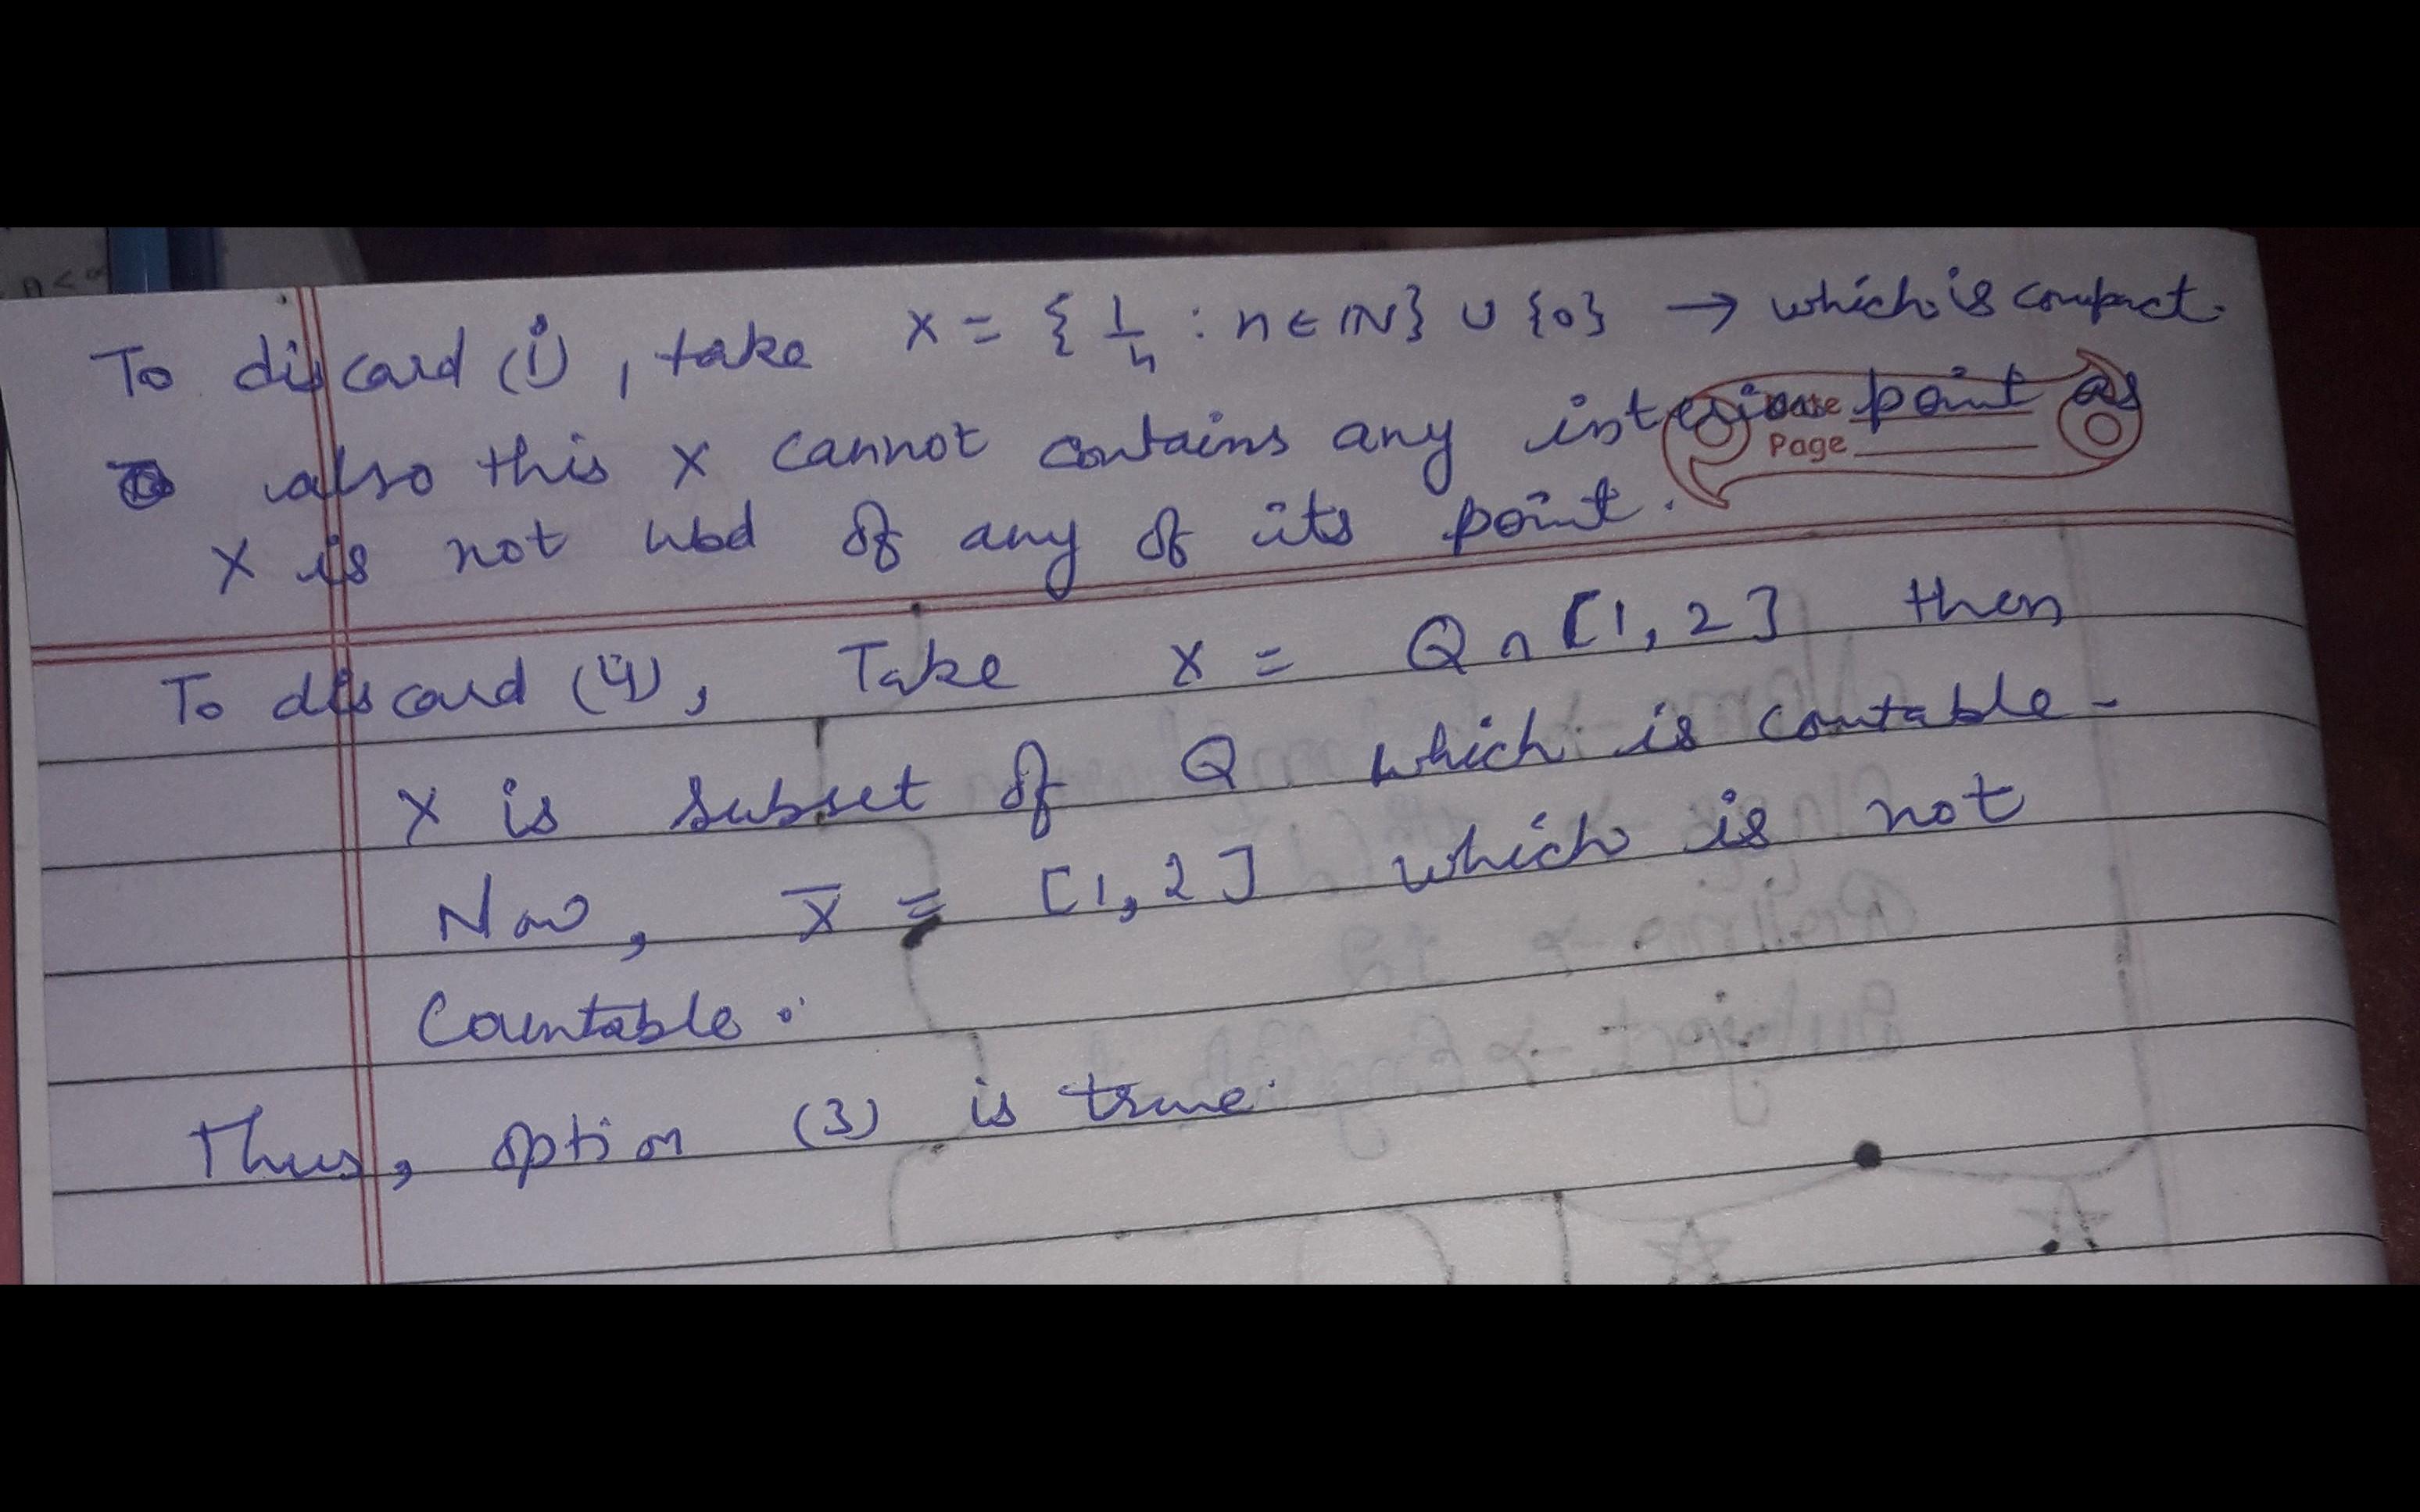 To discard (i), take X = { 1/n : n ∈ IN} ∪ {0} → which is compact.
also this X cannot contains any interior point as
Date
Page
X is not nbd of any of its point.
To discard (4), Take X = Q ∩ [1, 2] then
X is subset of Q which is countable.
Now, X̅ = [1, 2] which is not
Countable.
Thus, option (3) is true.